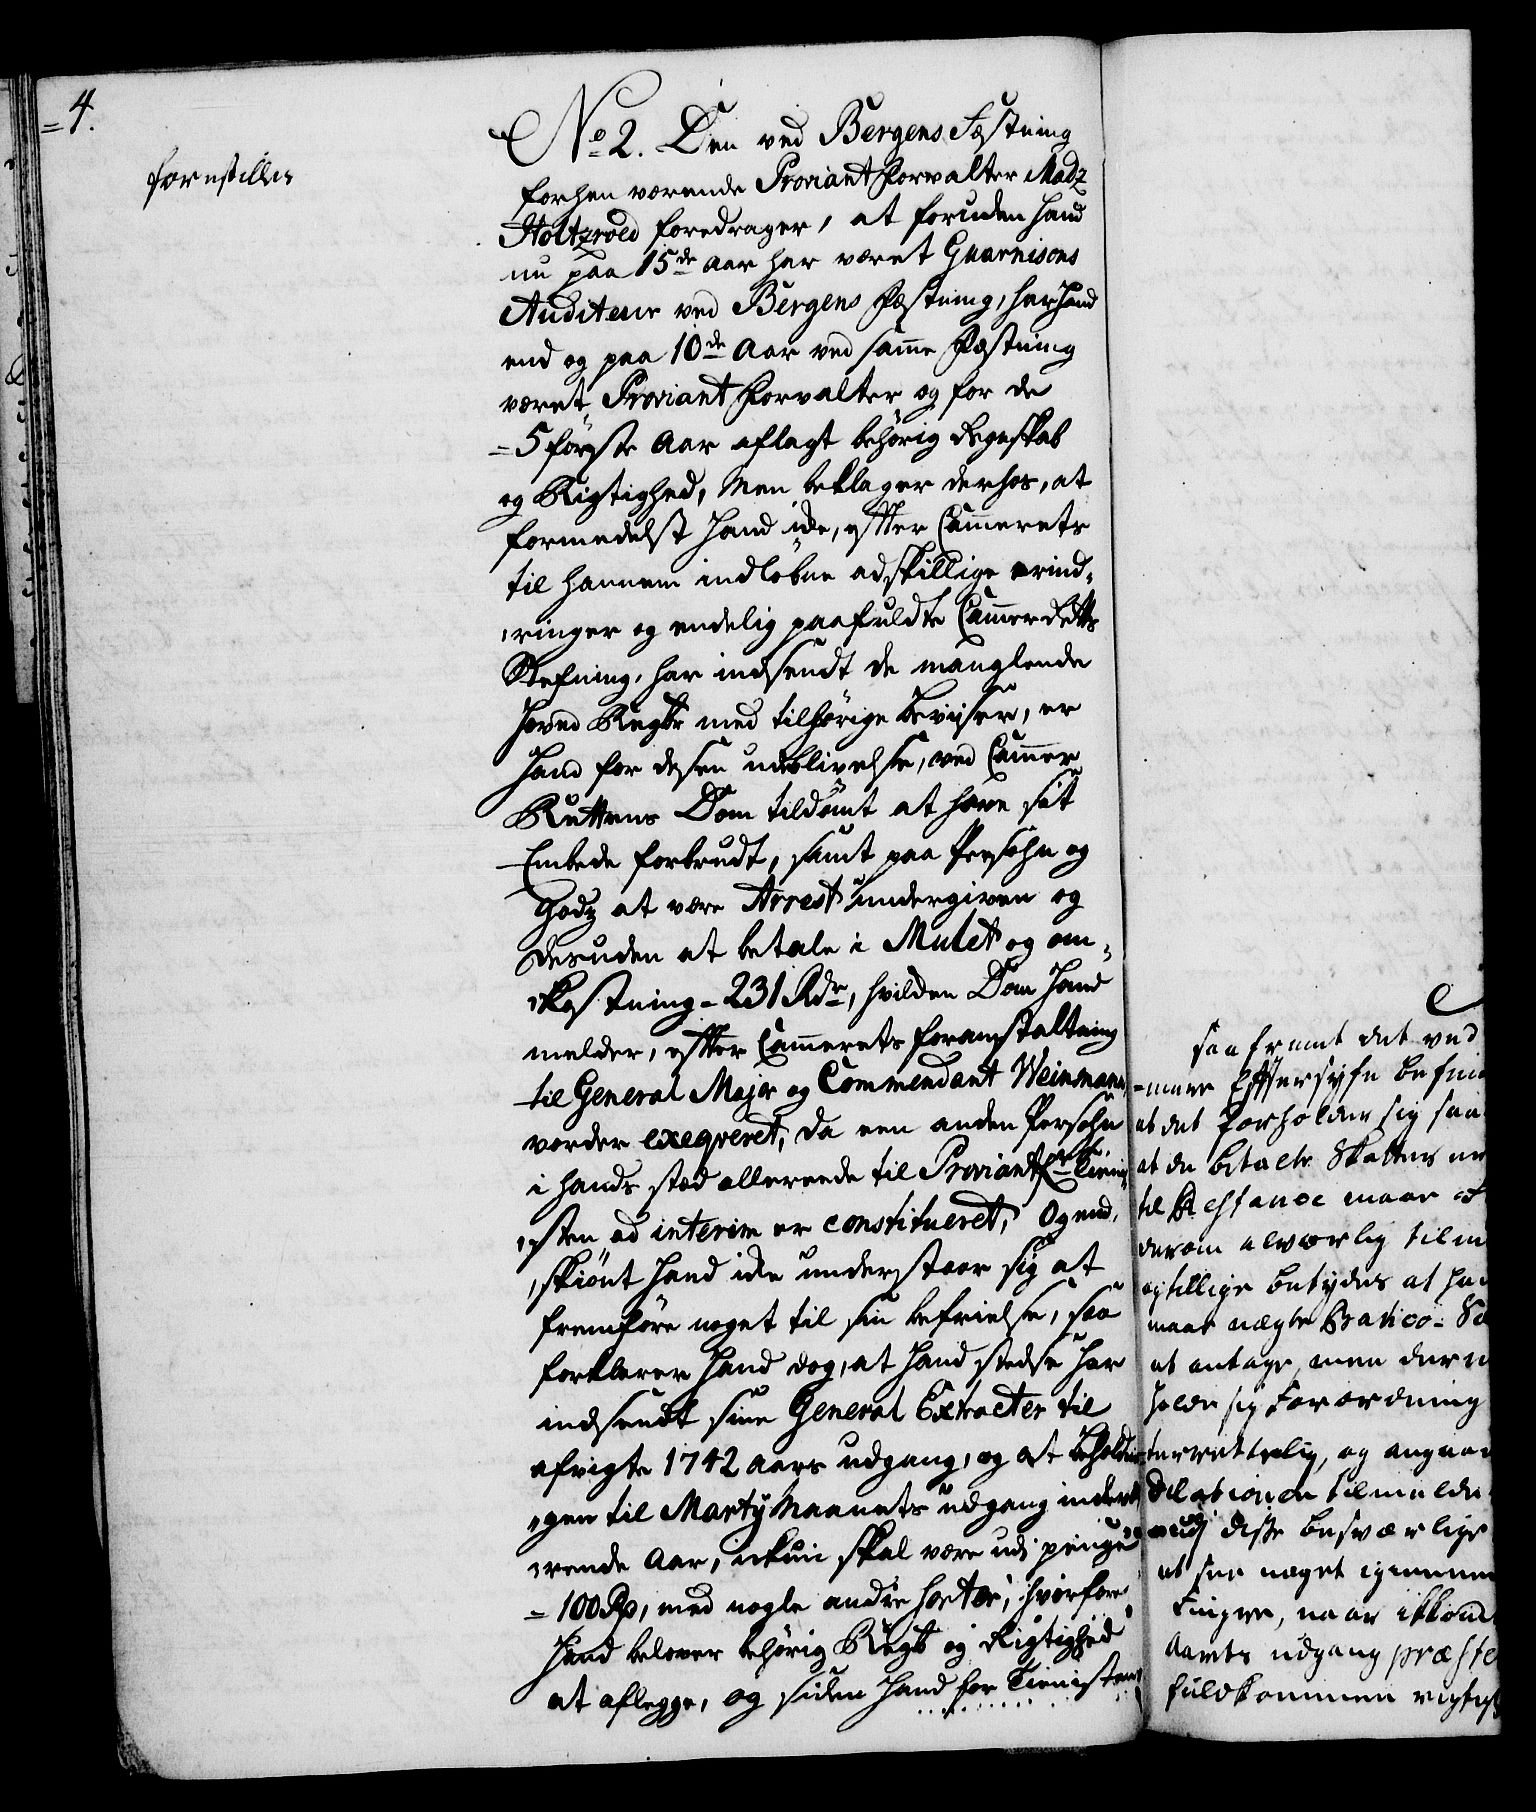 = 4.
forestilles
No 2. Den ved Bergens Fæstning
forhen værende Proviant Forvalter Madz
Holtzroed foredrager, at foruden Hand
nu paa 15de Aar har været Guarnisons
Auditeur ved Bergens Fæstning, har Hand
end og paa 10de Aar ved samme Fæstning
været Proviant Forvalter og for de
= 5 første Aar aflagt behörig Regnskab
og Rigtighed, Men beklager derhos, at
formedelst Hand icke, efter Cammerets
til hannem indløbne adskillige erind-
ringer og endelig paafuldte Cammer Retts
Stefning, har indsendt de manglende
Hoved Regnsk: med tilhörige beviiser, er
Hand for dessen udeblivelse, ved Cammer
Rettens Dom tildömt at have sit
Embede forbrudt, samt paa Persohn og
Godz at være Arrest undergiven og
desuden at betale i Mulct og om-
kostning = 231 Rdr, hvilcken Dom Hand
melder, efter Cammerets foranstaltning
til General Major og Commendant Weinmann
vorder exeqveret, da een anden Persohn
i hands stæd allereede til Proviant F: Tieni-
sten ad interim er constitueret, Og end-
skiönt Hand icke understaar sig at
fremföre noget til sin befrielse, saa
forklarer Hand dog, at Hand stedse har
indsendt sine General Extracter til
afvigte 1742 Aars udgang, og at beholdnin-
gen til Martÿ Maanets udgang indevæ-
rende Aar, ickun skal være udi penge
= 100 Rd, med nogle andre Poster, hvorfore
Hand belover behörig Regnsk: og Rigtighed
at aflegge, og siden Hand for Tienisten
saafremt det ved
mere Eftersyn befin
at det forholder sig saa
at de betalte Skatters
til Restance maae
derom alvorlig tilm
og tillige betydes at ha
maae nægte Banco-
at antage, men derm
holde sig Forordning
terrettelig, og angaa
Dilationen tilmelde
udi disse besværlige
at see noget igiennem
Fingre, naar ickund
Aarets udgang præste
fuldkommen rigtigh